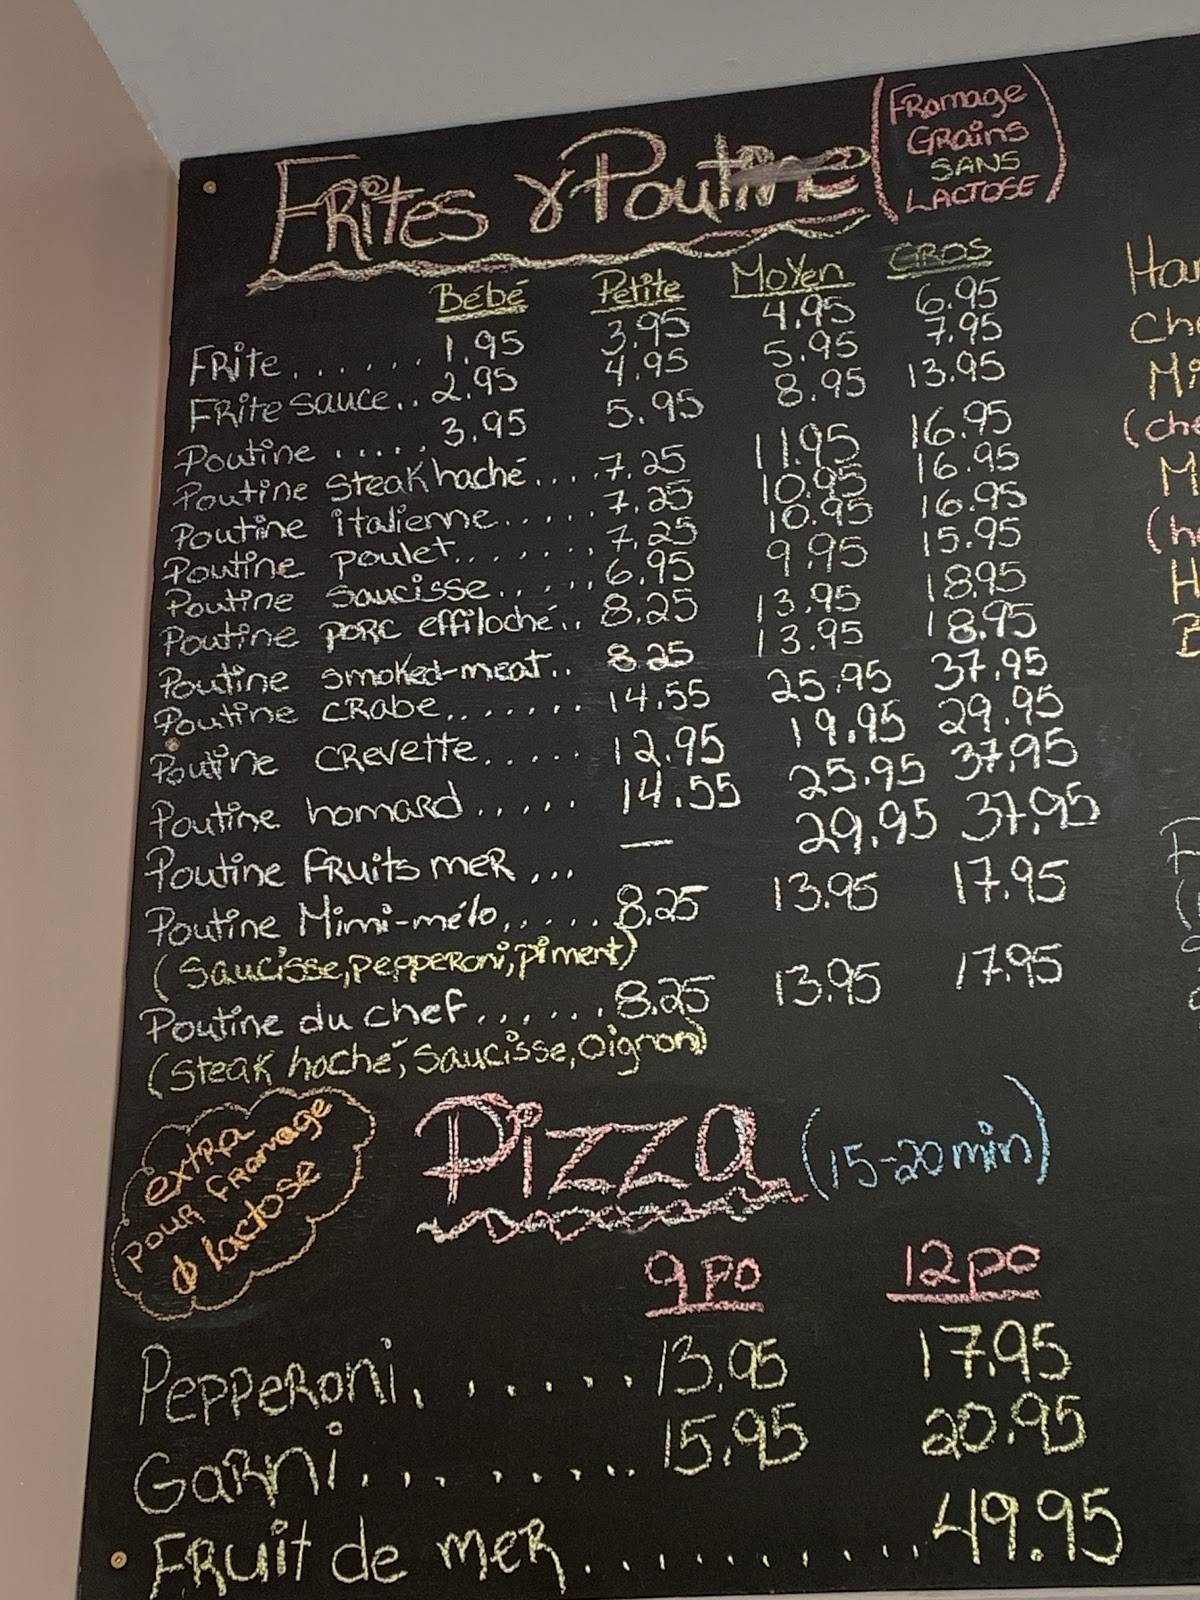 FRites & Poutine (Fromage
GRains
SANS
LACTOSE)
Bébé Petite Moyen GROS
FRite...... 1.95 3.95 4.95 6.95
FRite sauce.. 2.95 4.95 5.95 7.95
Poutine ..... 3.95 5.95 8.95 13.95
Poutine steak haché.... 7.25 11.95 16.95
Poutine italienne...... 7.25 10.95 16.95
Poutine poulet........ 7.25 10.95 16.95
Poutine saucisse...... 6.95 9.95 15.95
Poutine poRc effiloché.. 8.25 13.95 18.95
Poutine smoked-meat.. 8.25 13.95 18.95
Poutine CRabe....... 14.55 25.95 37.95
Poutine CRevette..... 12.95 19.95 29.95
Poutine homaRd..... 14.55 25.95 37.95
Poutine FRuits meR ... — 29.95 37.95
Poutine Mimi-mélo...... 8.25 13.95 17.95
(Saucisse, pepperoni, piment)
Poutine du chef...... 8.25 13.95 17.95
(Steak haché, Saucisse, Oignon)
extRa
pour FRomage
lactose
Pizza (15-20 min)
9 po 12 po
PePPeRoni....... 13.95 17.95
GaRni......... 15.95 20.95
FRuit de meR........... 49.95
Ha
Ch
Mi
(che
M
(h
H
B